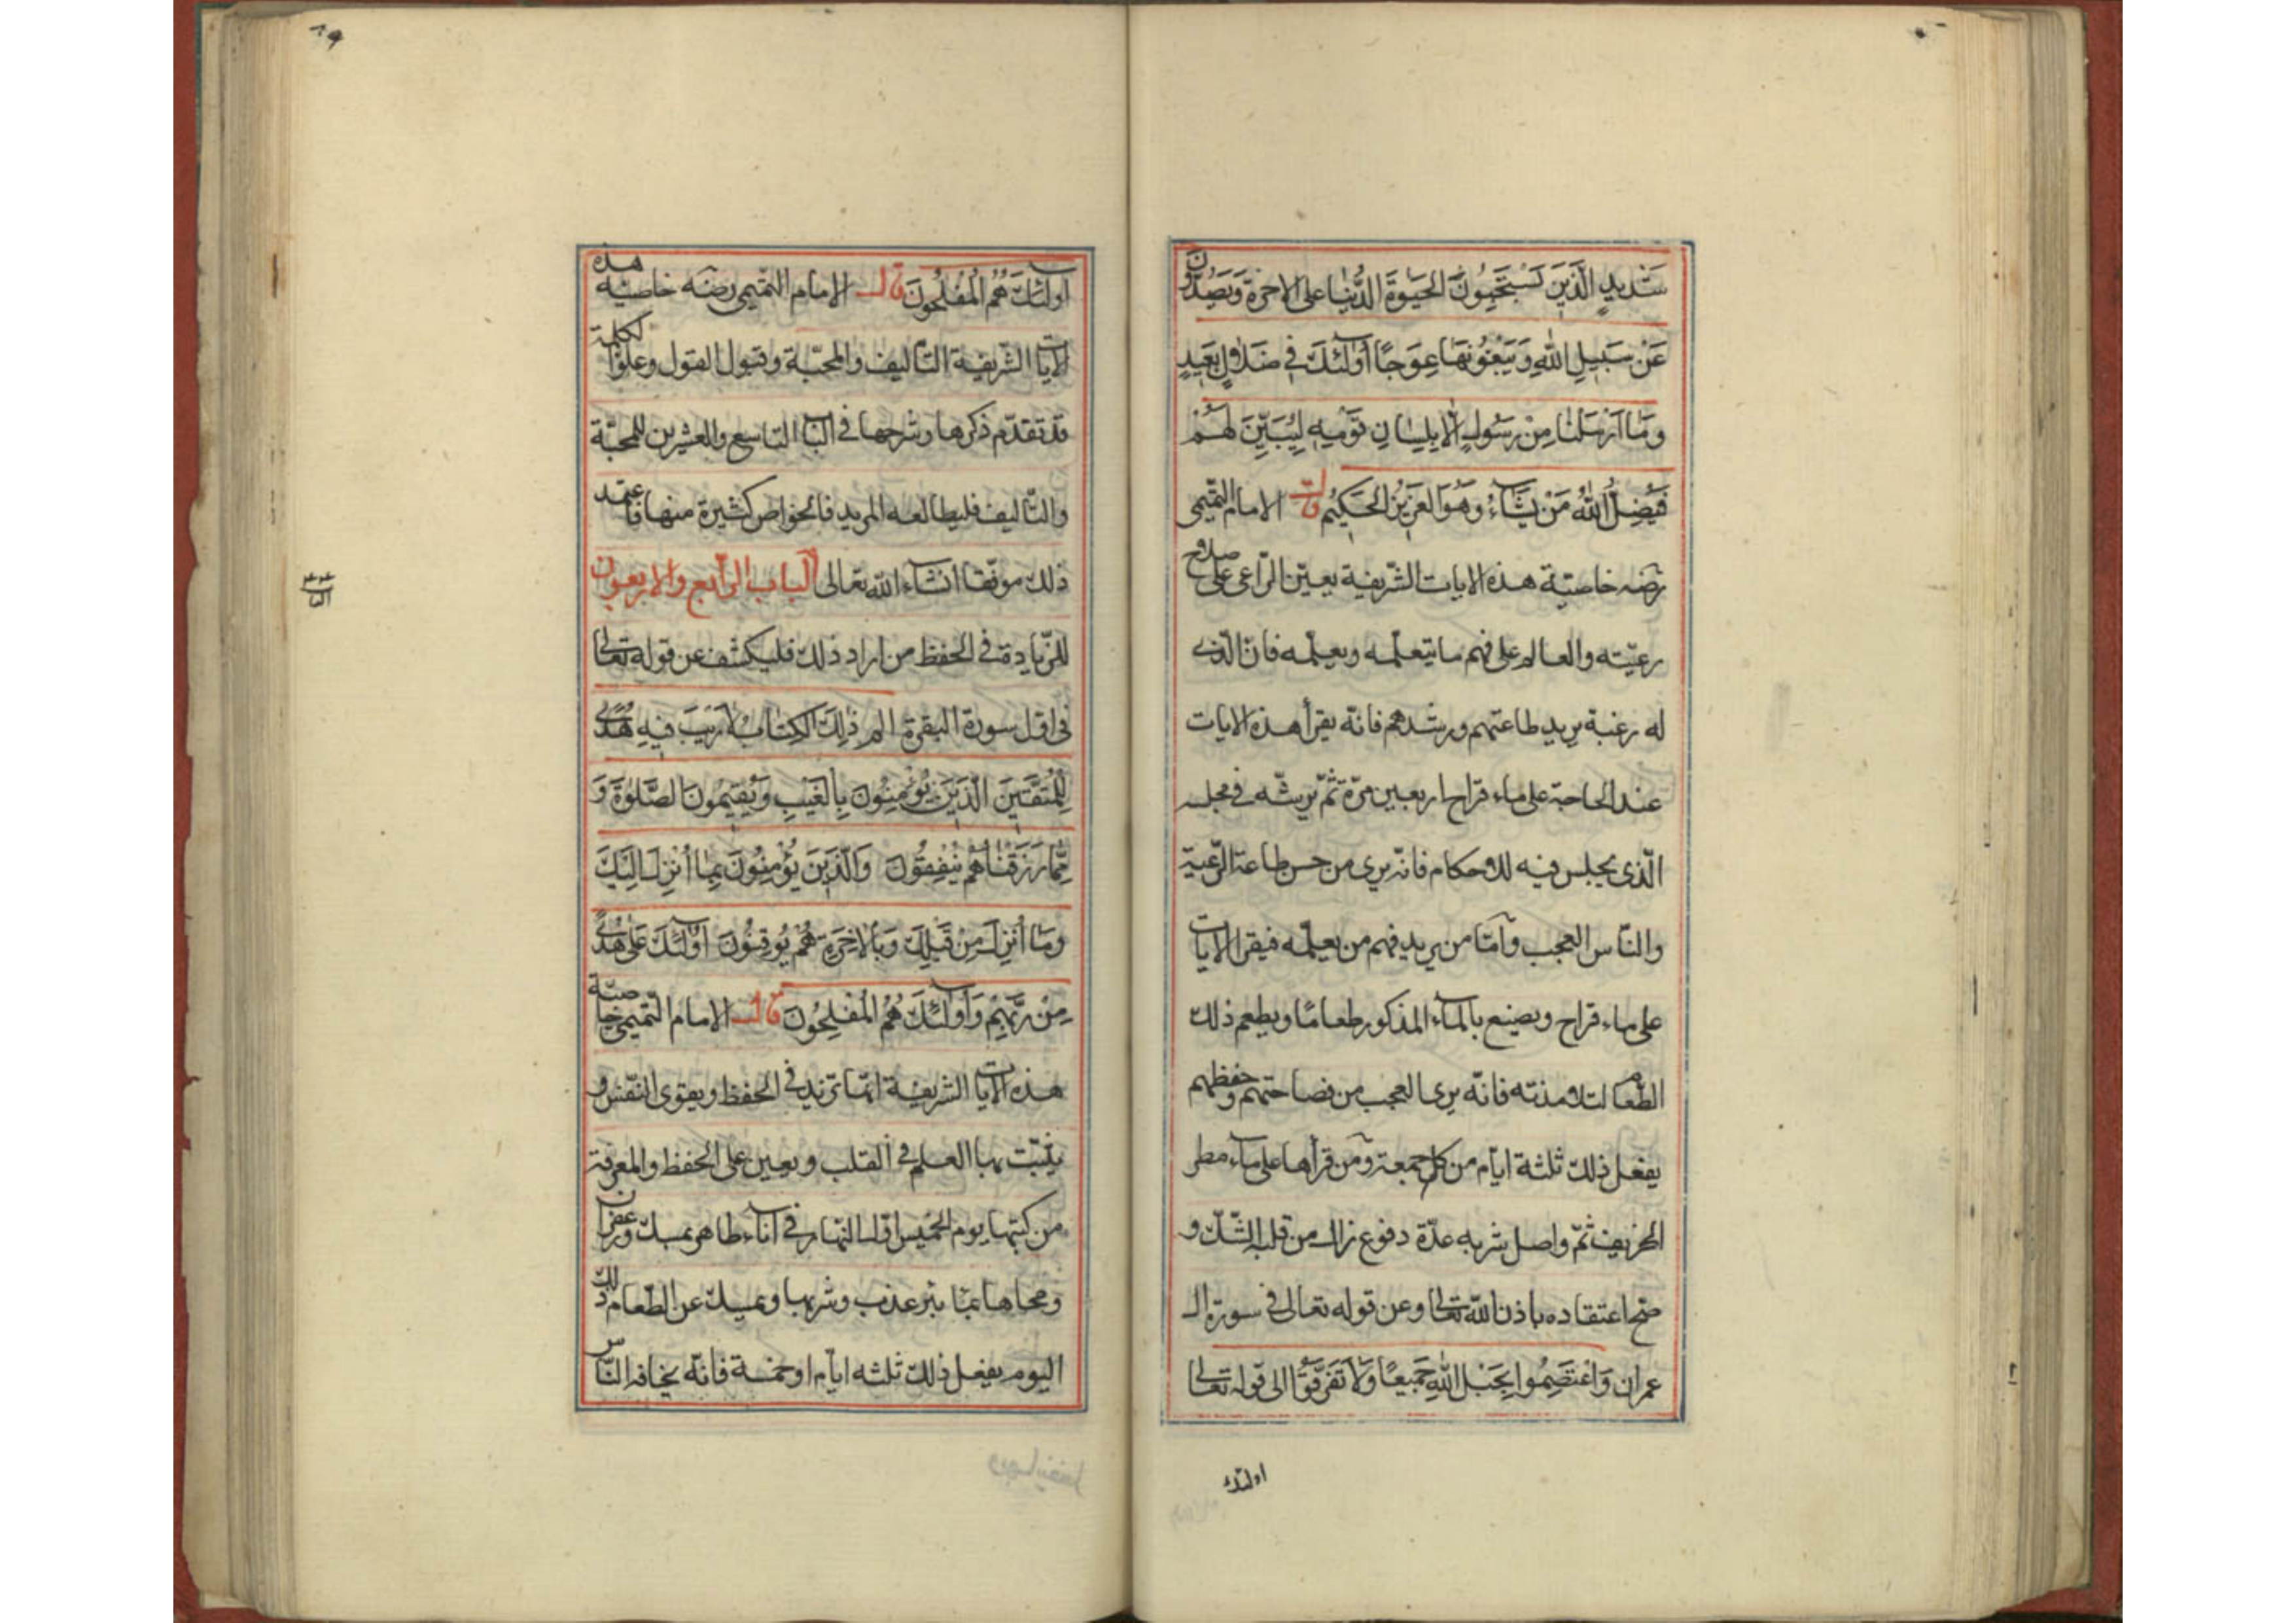 شَدِيدٍ الَّذِينَ يَسْتَحِبُّونَ الْحَيٰوةَ الدُّنْيَا عَلَى الْاٰخِرَةِ وَيَصُدُّونَ
عَنْ سَبِيلِ اللّٰهِ وَيَبْغُونَهَا عِوَجًا أُولٰئِكَ فِي ضَلَالٍ بَعِيدٍ
وَمَا اَرْسَلْنَا مِنْ رَسُولٍ اِلَّا بِلِسَانِ قَوْمِهِ لِيُبَيِّنَ لَهُمْ
فَيُضِلُّ اللّٰهُ مَنْ يَشَاءُ وَهُوَ الْعَزِيزُ الْحَكِيمُ قال الامام التّميمى
رضه خاصيّة هذه الايات الشّريفة يعين الرّاعى على صلاح
رعيّته والعالم على فهم ما يتعلّمه ويعلّمه فان الّذى
له رغبة يريد طاعتهم ورشدهم فانّه يقرأ هذه الايات
عند الحاجة على ماء قراح اربعين مرّة ثمّ يرشّه فى مجلسه
الّذى يجلس فيه للاحكام فانّه يرى من حسن طاعة الرّعية
والنّاس العجب وامّا من يريد فهم من يعلّمه فيقرا الايات
على ماء قراح ويصنع بالماء المذكور طعامًا ويطعم ذلك
الطّعام لتلامذته فانّه يرى العجب من فصاحتهم وحفظهم
يفعل ذلك ثلثة ايّام من كلّ جمعة ومن قرأها على ماء مطر
الخريف ثمّ واصل شربه عدّة دفوع زال من قلبه الشّكّ و
صحّ اعتقاده باذن اللّه تعالى وعن قوله تعالى فى سورة ال
عمران وَاعْتَصِمُوا بِحَبْلِ اللّٰهِ جَمِيعًا وَلَا تَفَرَّقُوا الى قوله تعالى
اولئك
٨٩
أُولٰئِكَ هُمُ الْمُفْلِحُونَ قال الامام التّميمى رضه خاصيّة هذه
الايات الشّريفة التّاليف والمحبّة وقبول القول وعلوّ الكلمة
قد تقدّم ذكرها وشرحها فى الباب التاسع والعشرين للمحبّة
والتّاليف فليطالعه المريد فالخواص كثيرة منها فاعتمد
ذلك موفّقا انشاء اللّه تعالى الباب الرّابع والاربعون
للزّيادة فى الحفظ من اراد ذلك فليكشف عن قوله تعالى
فى اوّل سورة البقرة الم ذٰلِكَ الْكِتَابُ لَا رَيْبَ فِيهِ هُدًى
لِلْمُتَّقِينَ الَّذِينَ يُؤْمِنُونَ بِالْغَيْبِ وَيُقِيمُونَ الصَّلٰوةَ وَ
مِمَّا رَزَقْنَاهُمْ يُنْفِقُونَ وَالَّذِينَ يُؤْمِنُونَ بِمَا أُنْزِلَ اِلَيْكَ
وَمَا أُنْزِلَ مِنْ قَبْلِكَ وَبِالْاٰخِرَةِ هُمْ يُوقِنُونَ أُولٰئِكَ عَلٰى هُدًى
مِنْ رَبِّهِمْ وَأُولٰئِكَ هُمُ الْمُفْلِحُونَ قال الامام التّميمى خاصيّة
هذه الايات الشّريفة انّها تزيد فى الحفظ ويقوى النّفس و
يثبّت بها العلم فى القلب ويعين على الحفظ والمعرفة
من كتبها يوم الخميس اوّل النّهار فى اناء طاهر بمسك وزعفران
ومحاها بماء بئر عذب وشربها ويمسك عن الطّعام ذلك
اليوم يفعل ذلك ثلثه ايّام او خمسة فانّه يخافه النّاس